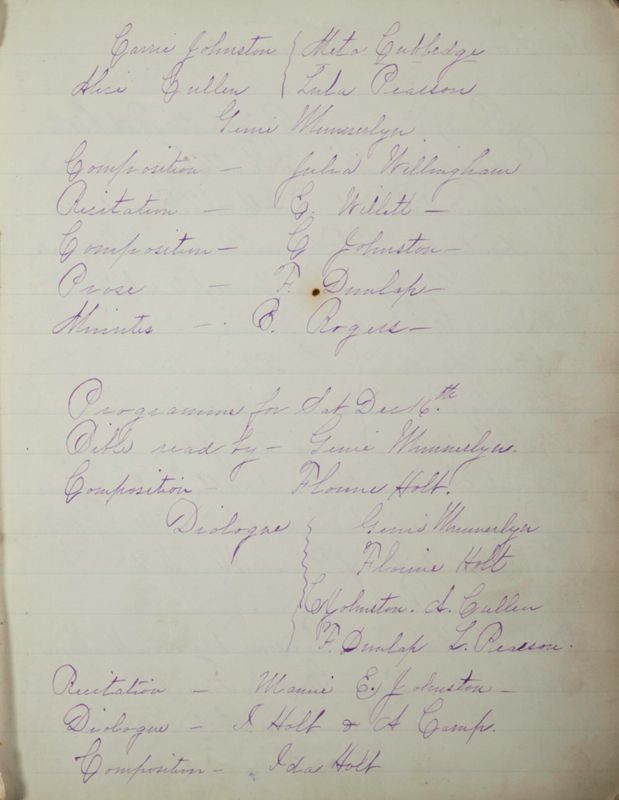 Carrie Johnston { Meta Cubbedge
Alice Cullen { Lula Pearson
Genie Munnerlyn
Composition — Julia Willingham
Recitation — E. Willett —
Composition — C Johnston —
Prose — F. Dunlap —
Minutes — B. Rogers —
Programme for Sat Dec 16.th
Bible read by — Genie Munnerlyn.
Composition — Florine Holt.
Diologue { Genie Munnerlyn
Florine Holt
C Johnston. A. Cullen
F. Dunlap L. Pearson.
Recitation — Mamie E. Johnston —
Diologue — I. Holt & A Camp.
Composition — Ida Holt